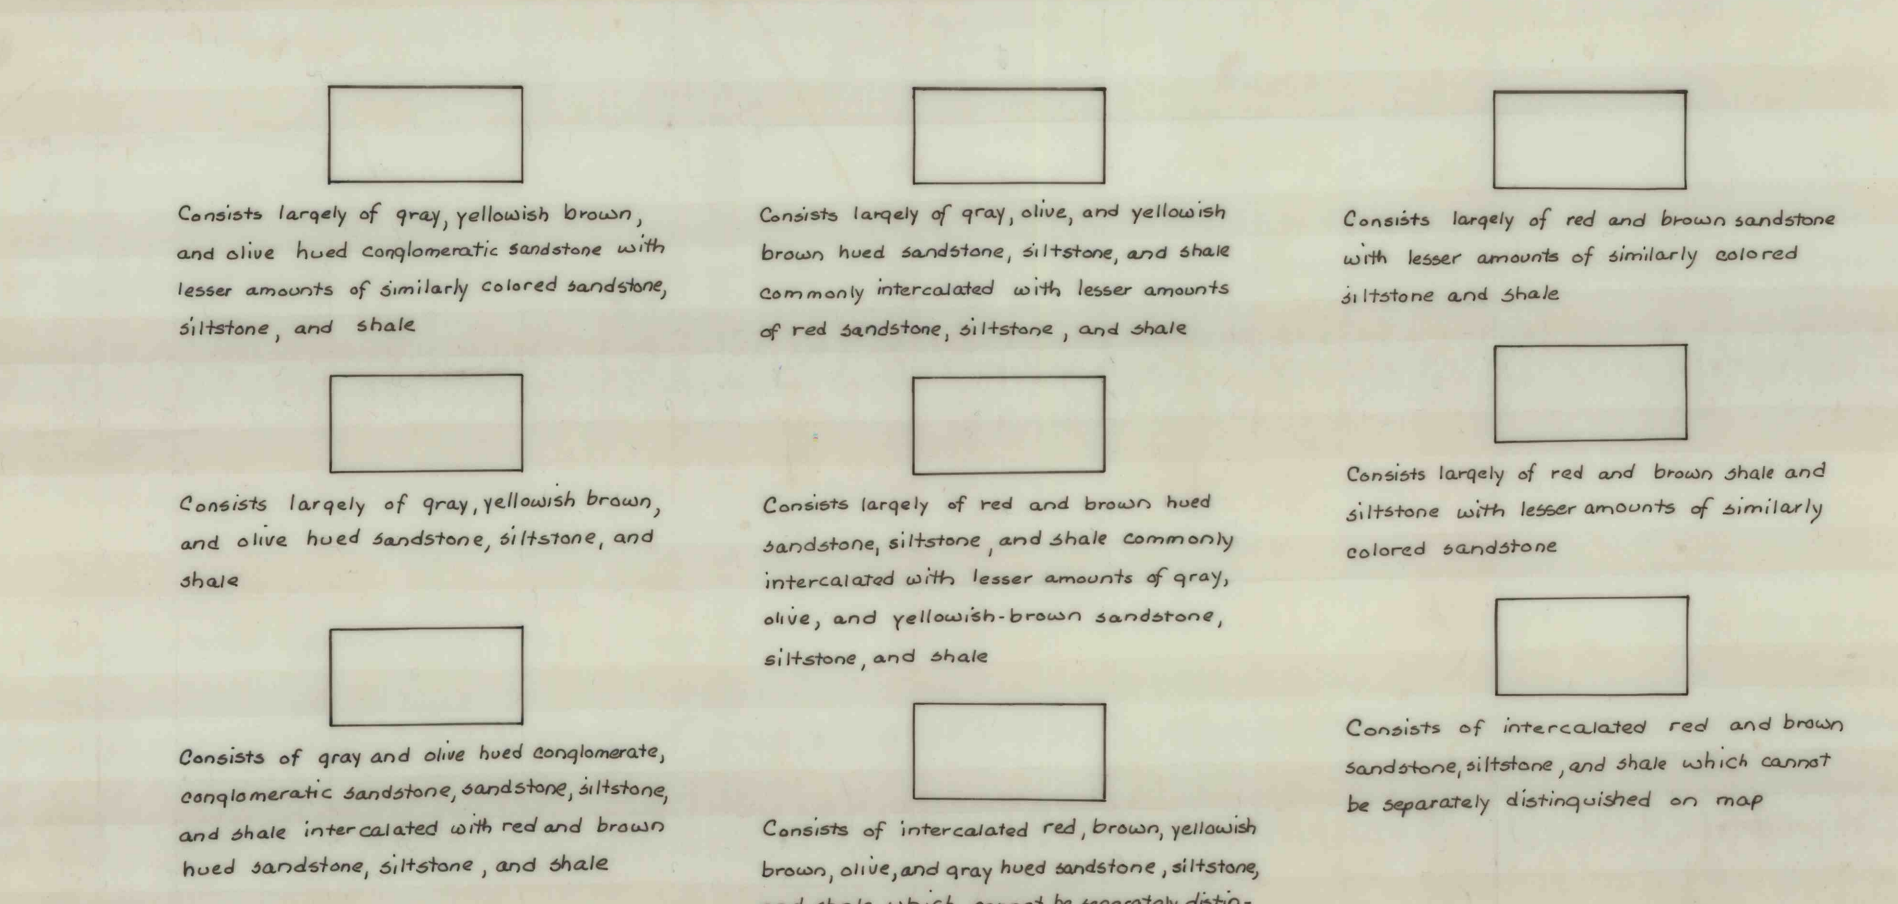 Consists largely of gray, yellowish brown,
and olive hued conglomeratic sandstone with
lesser amounts of similarly colored sandstone,
siltstone, and shale
Consists largely of gray, yellowish brown,
and olive hued sandstone, siltstone, and
shale
Consists of gray and olive hued conglomerate,
conglomeratic sandstone, sandstone, siltstone,
and shale intercalated with red and brown
hued sandstone, siltstone, and shale
Consists largely of gray, olive, and yellowish
brown hued sandstone, siltstone, and shale
commonly intercalated with lesser amounts
of red sandstone, siltstone, and shale
Consists largely of red and brown hued
sandstone, siltstone, and shale commonly
intercalated with lesser amounts of gray,
olive, and yellowish-brown sandstone,
siltstone, and shale
Consists of intercalated red, brown, yellowish
brown, olive, and gray hued sandstone, siltstone,
and shale which cannot be separately distin-
Consists largely of red and brown sandstone
with lesser amounts of similarly colored
siltstone and shale
Consists largely of red and brown shale and
siltstone with lesser amounts of similarly
colored sandstone
Consists of intercalated red and brown
sandstone, siltstone, and shale which cannot
be separately distinguished on map